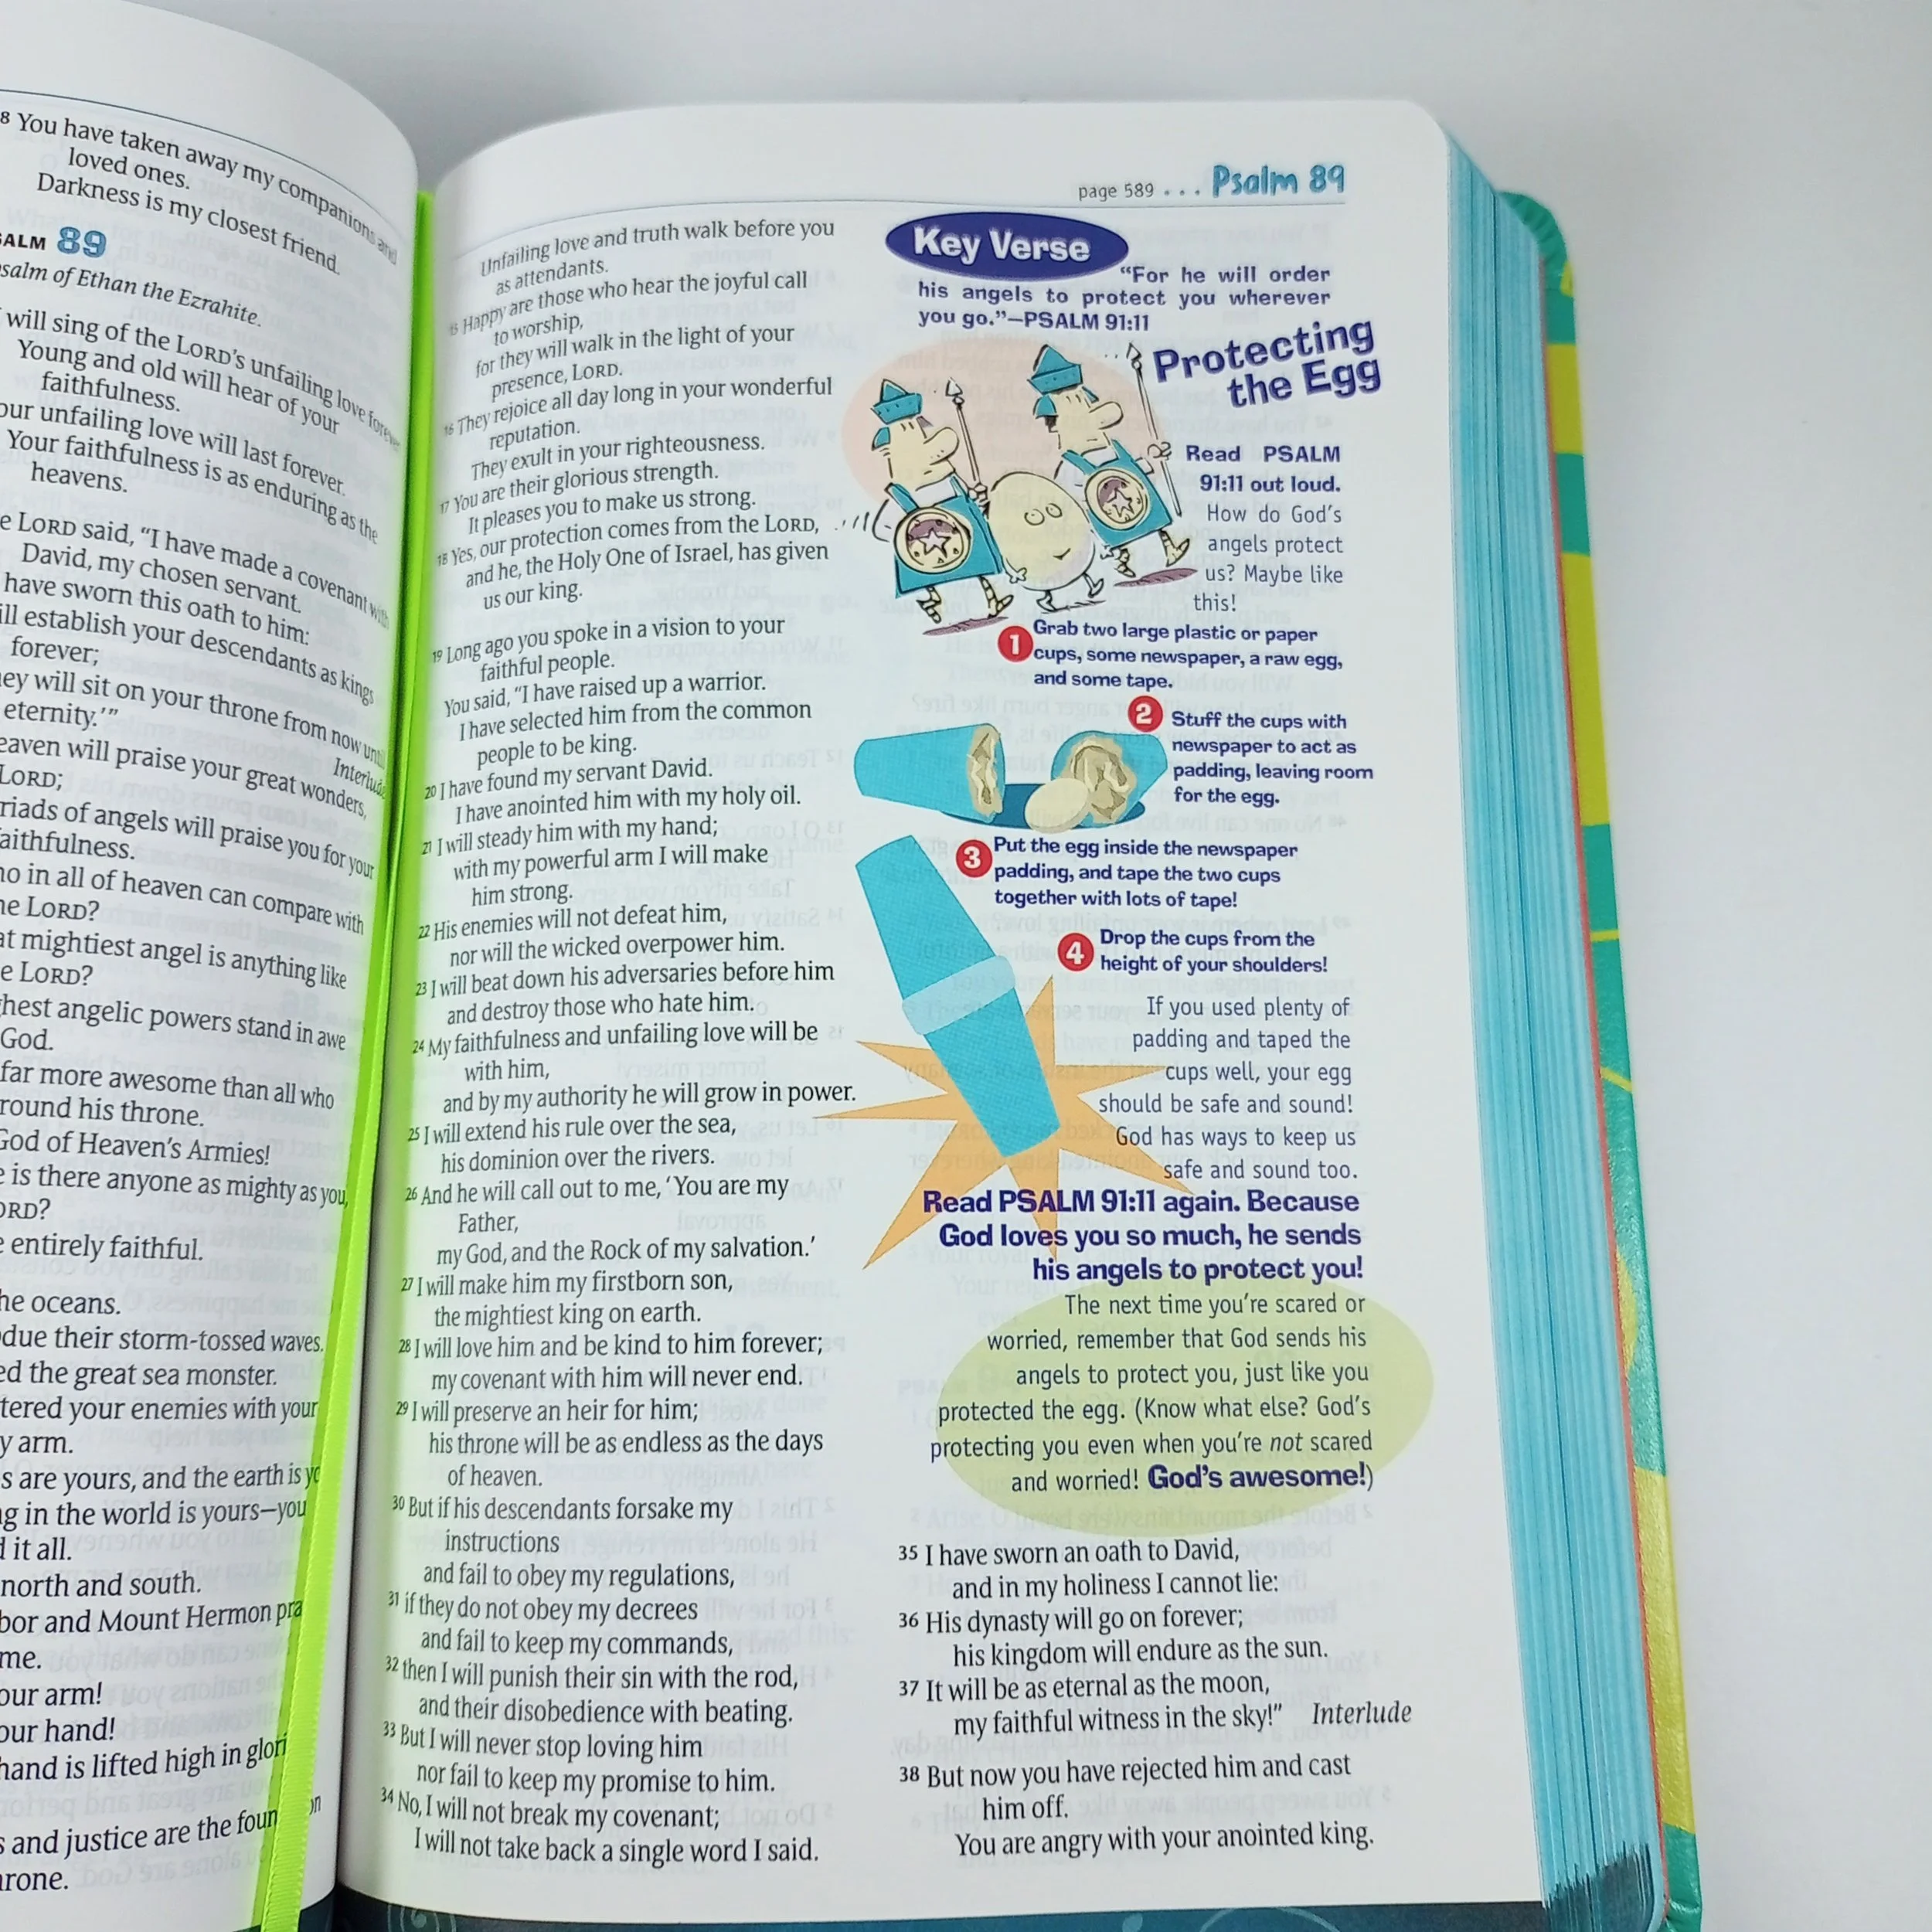 8 You have taken away my companions and
loved ones.
Darkness is my closest friend.
89
salm of Ethan the Ezrahite.
will sing of the LORD's unfailing love forever
Young and old will hear of your
faithfulness.
our unfailing love will last forever.
Your faithfulness is as enduring as the
heavens.
e LORD said, “I have made a covenant with
David, my chosen servant.
have sworn this oath to him:
ill establish your descendants as kings
forever;
ey will sit on your throne from now until
eternity.’”
Interlude
eaven will praise your great wonders,
LORD;
riads of angels will praise you for your
faithfulness.
ho in all of heaven can compare with
he LORD?
at mightiest angel is anything like
e LORD?
ghest angelic powers stand in awe
God.
far more awesome than all who
round his throne.
God of Heaven's Armies!
e is there anyone as mighty as you,
ORD?
e entirely faithful.
he oceans.
due their storm-tossed waves.
ed the great sea monster.
tered your enemies with your
y arm.
s are yours, and the earth is yo
ng in the world is yours—you
d it all.
north and south.
bor and Mount Hermon pra
me.
our arm!
our hand!
hand is lifted high in glori
s and justice are the foun on
hrone.
page 589 . . . Psalm 89
Unfailing love and truth walk before you
as attendants.
15 Happy are those who hear the joyful call
to worship,
for they will walk in the light of your
presence, LORD.
16 They rejoice all day long in your wonderful
reputation.
They exult in your righteousness.
17 You are their glorious strength.
It pleases you to make us strong.
18 Yes, our protection comes from the LORD,
and he, the Holy One of Israel, has given
us our king.
19 Long ago you spoke in a vision to your
faithful people.
You said, “I have raised up a warrior.
I have selected him from the common
people to be king.
20 I have found my servant David.
I have anointed him with my holy oil.
21 I will steady him with my hand;
with my powerful arm I will make
him strong.
22 His enemies will not defeat him,
nor will the wicked overpower him.
23 I will beat down his adversaries before him
and destroy those who hate him.
24 My faithfulness and unfailing love will be
with him,
and by my authority he will grow in power.
25 I will extend his rule over the sea,
his dominion over the rivers.
26 And he will call out to me, ‘You are my
Father,
my God, and the Rock of my salvation.’
27 I will make him my firstborn son,
the mightiest king on earth.
28 I will love him and be kind to him forever;
my covenant with him will never end.
29 I will preserve an heir for him;
his throne will be as endless as the days
of heaven.
30 But if his descendants forsake my
instructions
and fail to obey my regulations,
31 if they do not obey my decrees
and fail to keep my commands,
32 then I will punish their sin with the rod,
and their disobedience with beating.
33 But I will never stop loving him
nor fail to keep my promise to him.
34 No, I will not break my covenant;
I will not take back a single word I said.
Key Verse
“For he will order
his angels to protect you wherever
you go.”—PSALM 91:11
Protecting
the Egg
Read PSALM
91:11 out loud.
How do God's
angels protect
us? Maybe like
this!
1 Grab two large plastic or paper
cups, some newspaper, a raw egg,
and some tape.
2 Stuff the cups with
newspaper to act as
padding, leaving room
for the egg.
3 Put the egg inside the newspaper
padding, and tape the two cups
together with lots of tape!
4 Drop the cups from the
height of your shoulders!
If you used plenty of
padding and taped the
cups well, your egg
should be safe and sound!
God has ways to keep us
safe and sound too.
Read PSALM 91:11 again. Because
God loves you so much, he sends
his angels to protect you!
The next time you're scared or
worried, remember that God sends his
angels to protect you, just like you
protected the egg. (Know what else? God's
protecting you even when you're not scared
and worried! God's awesome!)
35 I have sworn an oath to David,
and in my holiness I cannot lie:
36 His dynasty will go on forever;
his kingdom will endure as the sun.
37 It will be as eternal as the moon,
my faithful witness in the sky!” Interlude
38 But now you have rejected him and cast
him off.
You are angry with your anointed king.